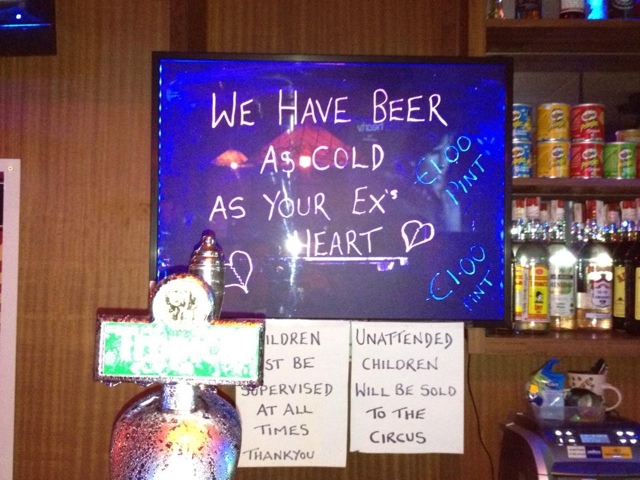 WE HAVE BEER
AS COLD
AS YOUR EX'S
HEART
€1.00
PINT
€1.00
PINT
ILDREN
ST BE
SUPERVISED
AT ALL
TIMES
THANKYOU
UNATTENDED
CHILDREN
WILL BE SOLD
TO THE
CIRCUS